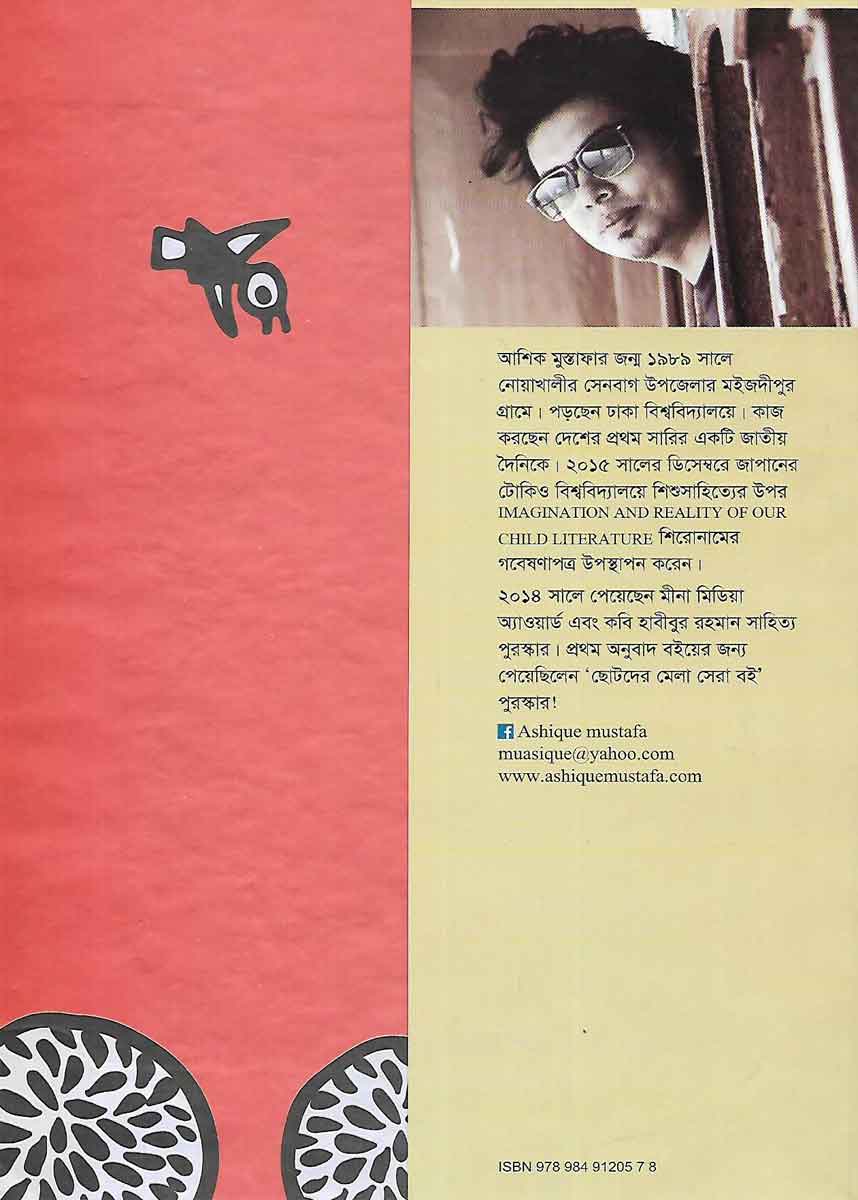 আশিক মুস্তাফার জন্ম ১৯৮৯ সালে
নোয়াখালীর সেনবাগ উপজেলার মইজদীপুর
গ্রামে। পড়ছেন ঢাকা বিশ্ববিদ্যালয়ে। কাজ
করছেন দেশের প্রথম সারির একটি জাতীয়
দৈনিকে। ২০১৫ সালের ডিসেম্বরে জাপানের
টোকিও বিশ্ববিদ্যালয়ে শিশুসাহিত্যের উপর
IMAGINATION AND REALITY OF OUR
CHILD LITERATURE শিরোনামের
গবেষণাপত্র উপস্থাপন করেন।
২০১৪ সালে পেয়েছেন মীনা মিডিয়া
অ্যাওয়ার্ড এবং কবি হাবীবুর রহমান সাহিত্য
পুরস্কার। প্রথম অনুবাদ বইয়ের জন্য
পেয়েছিলেন ‘ছোটদের মেলা সেরা বই’
পুরস্কার!
f Ashique mustafa
muasique@yahoo.com
www.ashiquemustafa.com
ISBN 978 984 91205 7 8